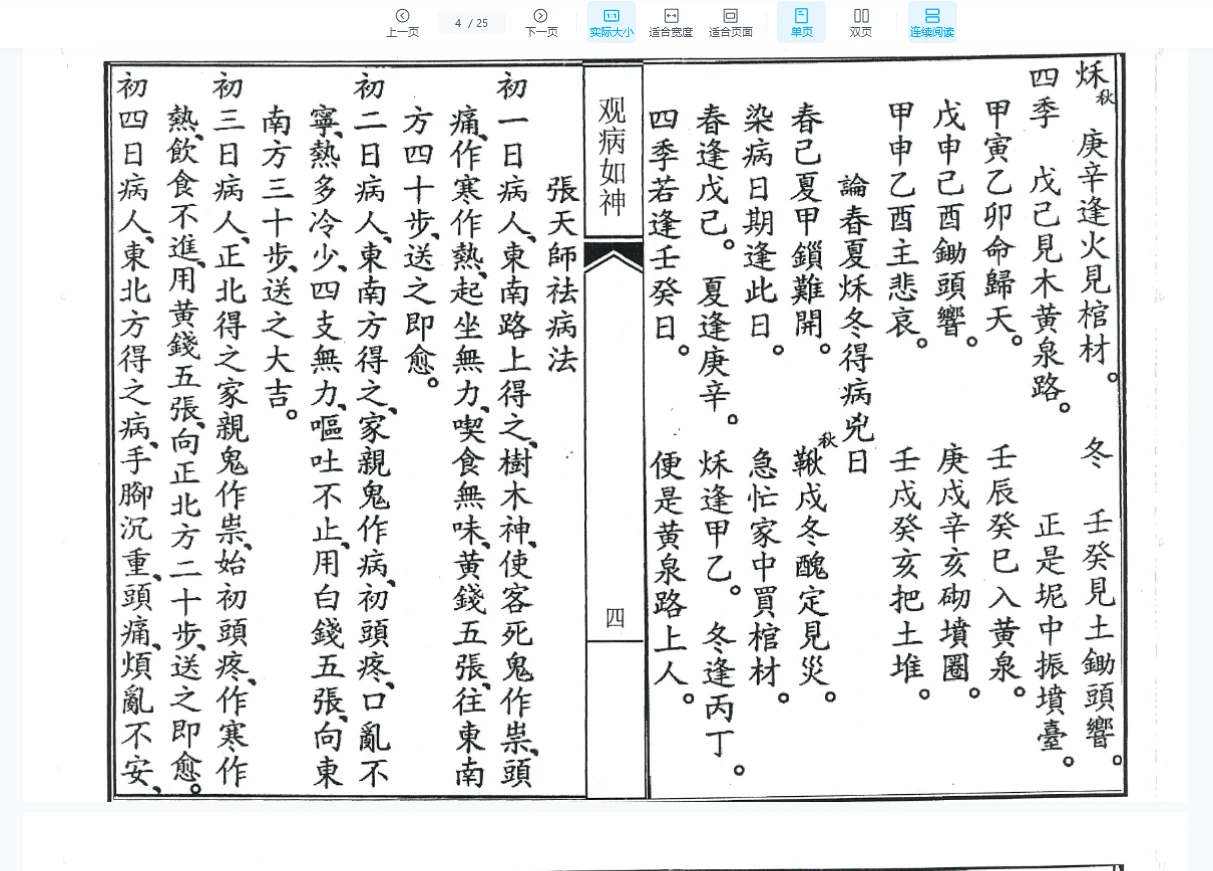 上一页
4 / 25
下一页
实际大小
适合宽度
适合页面
单页
双页
连续阅读
秌秋 庚辛逢火見棺材。 冬 壬癸見土鋤頭響。
四季 戊己見木黄泉路。 正是坭中振墳臺。
甲寅乙卯命歸天。 壬辰癸巳入黄泉。
戊申己酉鋤頭響。 庚戍辛亥砌墳圈。
甲申乙酉主悲哀。 壬戍癸亥把土堆。
論春夏秌冬得病兇日
春己夏甲鎻難開。 鞦秋戍冬醜定見災。
染病日期逢此日。 急忙家中買棺材。
春逢戊己。 夏逢庚辛。 秌逢甲乙。 冬逢丙丁。
四季若逢壬癸日。 便是黄泉路上人。
观病如神
四
張天師祛病法
初一日病人、東南路上得之、樹木神、使客死鬼作祟、頭
痛、作寒作熱、起坐無力、喫食無味、黄錢五張、往東南
方四十步、送之即愈。
初二日病人、東南方得之、家親鬼作病、初頭疼、口亂不
寧、熱多冷少、四支無力、嘔吐不止、用白錢五張、向東
南方三十步、送之大吉。
初三日病人、正北得之家親鬼作祟、始初頭疼、作寒作
熱、飲食不進、用黄錢五張、向正北方二十步、送之即愈。
初四日病人、東北方得之病、手腳沉重、頭痛、煩亂不安、